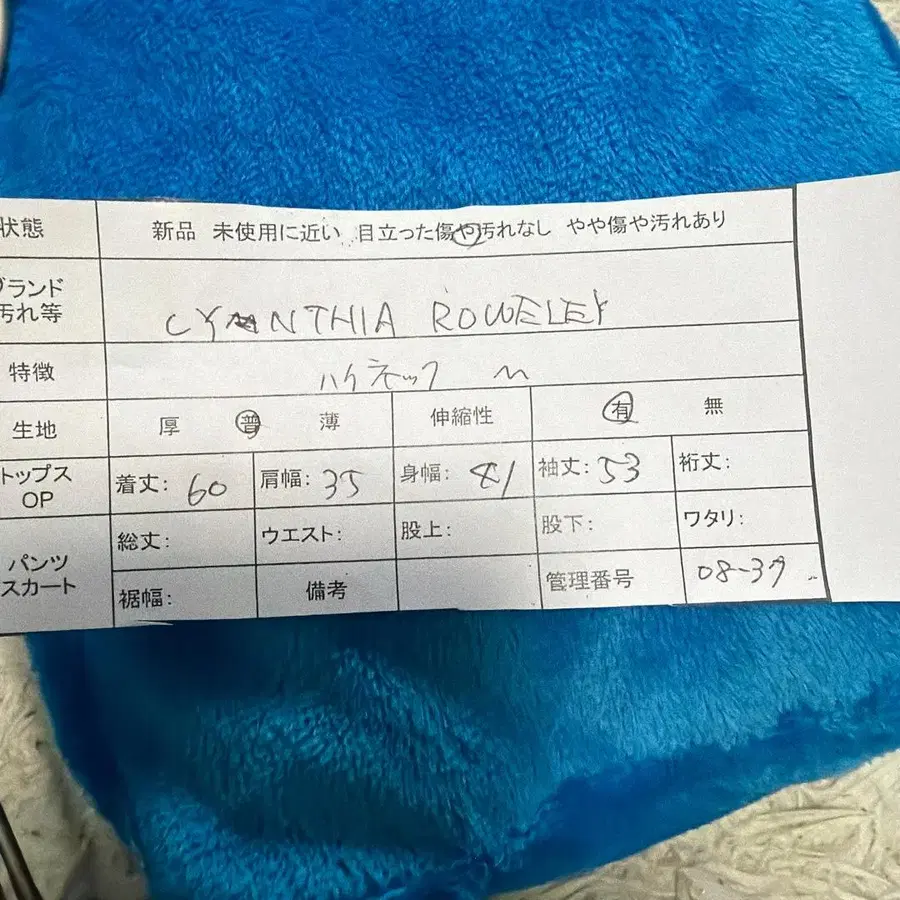 状態 新品 未使用に近い 目立った傷や汚れなし やや傷や汚れあり
ブランド
汚れ等 CYNTHIA ROWELEY
特徴 ハイネック M
生地 厚 普 薄 伸縮性 有 無
トップス
OP 着丈: 60 肩幅: 35 身幅: 41 袖丈: 53 裄丈:
パンツ
スカート 総丈: ウエスト: 股上: 股下: ワタリ:
裾幅: 備考 管理番号 08-37